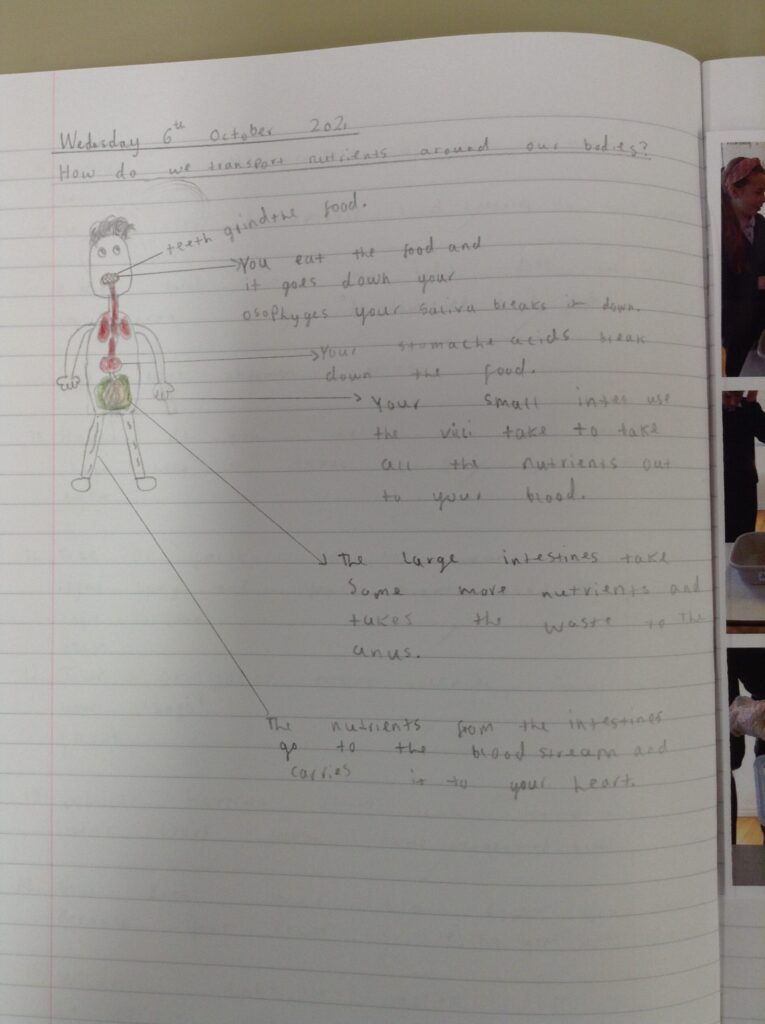 Wedesday 6th October 2021
How do we transport nutrients around our bodies?
teeth grind the food.
You eat the food and
it goes down your
osophyges your saliva breaks it down.
Your stomache acids break
down the food.
Your small intes use
the villi take to take
all the nutrients out
to your blood.
The large intestines take
Some more nutrients and
takes the waste to The
anus.
The nutrients from the intestines
go to the blood stream and
carries it to your heart.